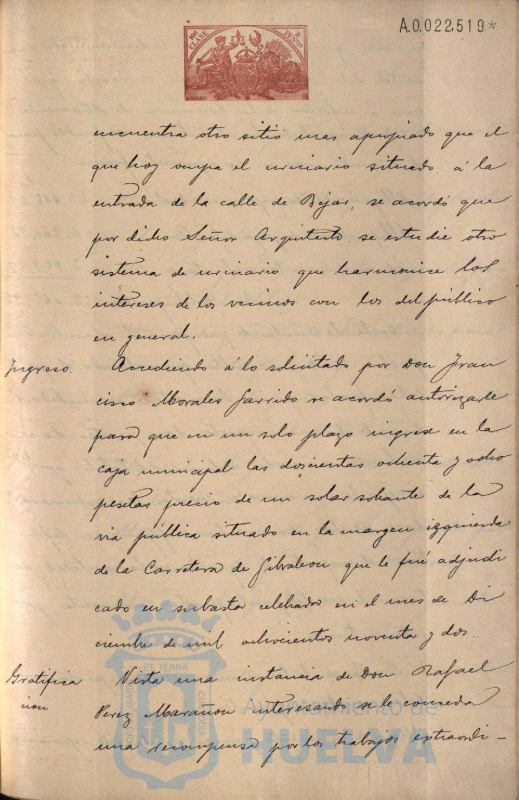 A.0.022,519*
10ª CLASE 2 PESETAS
encuentra otro sitio mas apropiado que el
que hoy ocupa el urinario situado á la
entrada de la calle de Bejar, se acordó que
por dicho Señor Arquitecto se estudie otro
sistema de urinario que harmonice los
intereses de los vecinos con los del público
en general.
Ingreso. Accediendo á lo solicitado por Don Fran
cisco Morales Garrido se acordó autorizarle
para que en un solo plazo ingrese en la
caja municipal las doscientas ochenta y ocho
pesetas precio de un solar sobrante de la
via pública situado en la margen izquierda
de la Carretera de Gibraleon que le fué adjudi
cado en subasta celebrada en el mes de Di
ciembre de mil ochocientos noventa y dos.
Gratifica
cion Vista una instancia de Don Rafael
Perez Marañon interesando se le conceda
una recompensa por los trabajos extraordi-
Ayuntamiento de
HUELVA